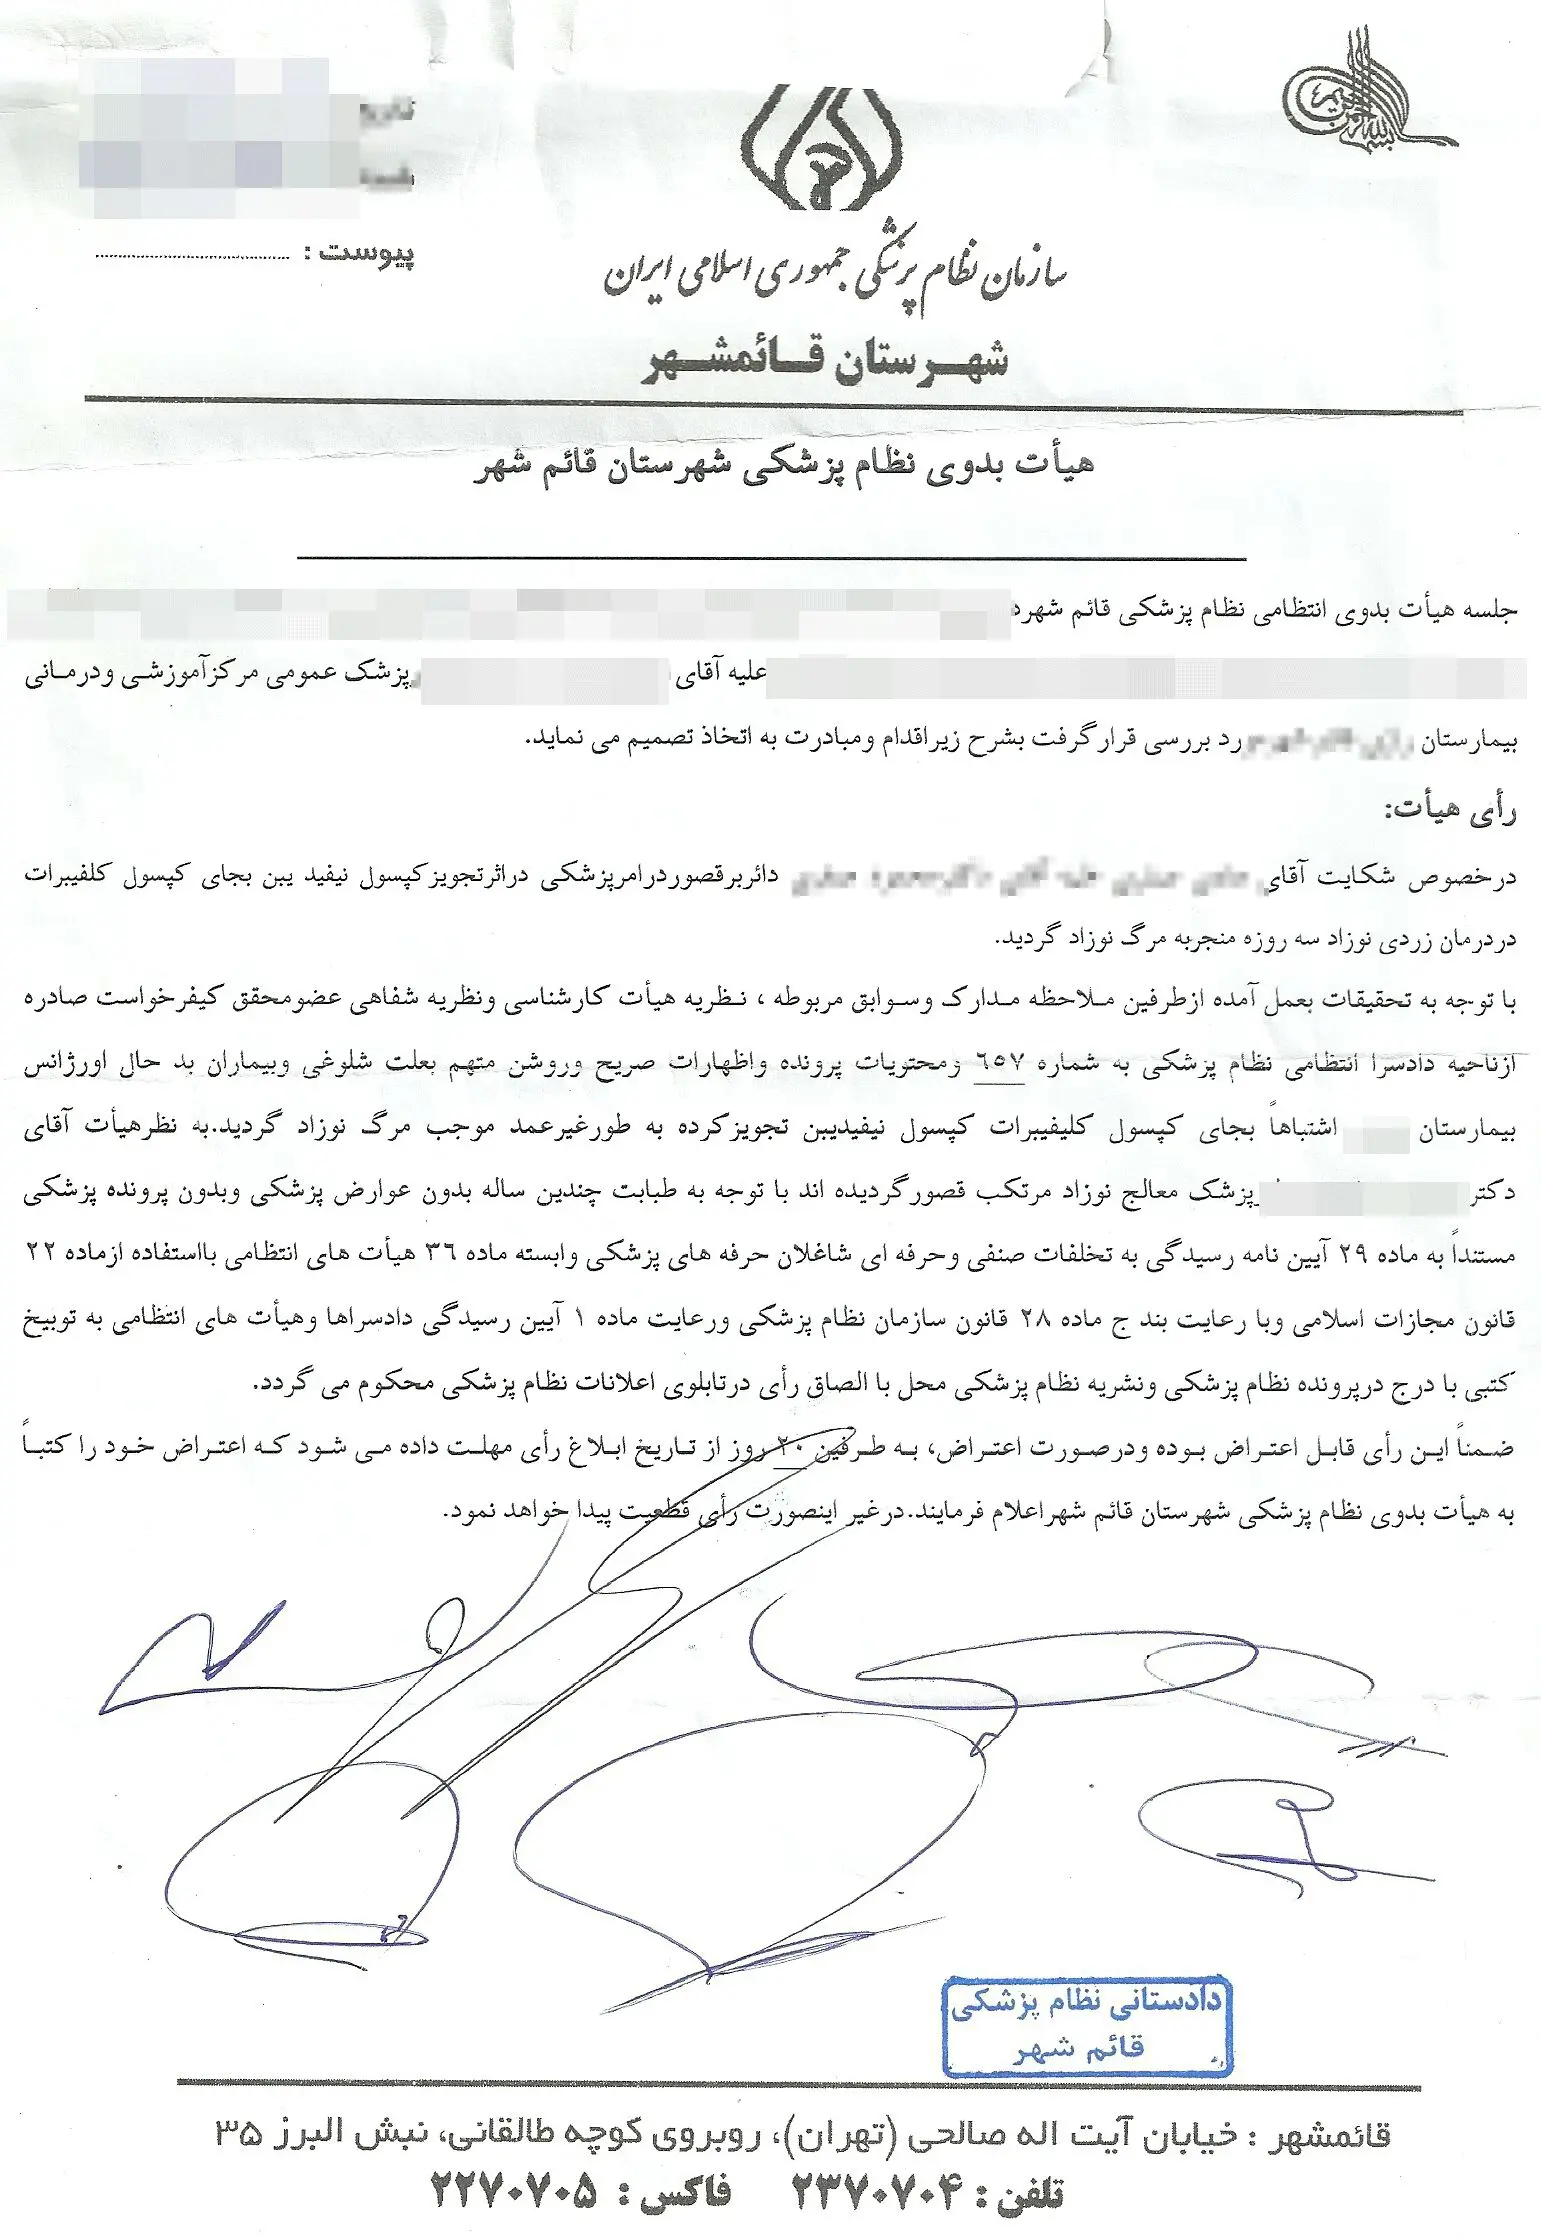 بسم الله الرحمن الرحیم
پیوست :
سازمان نظام پزشکی جمهوری اسلامی ایران
شهرستان قائمشهر
هیأت بدوی نظام پزشکی شهرستان قائم شهر
جلسه هیأت بدوی انتظامی نظام پزشکی قائم شهرد
علیه آقای پزشک عمومی مرکزآموزشی ودرمانی
بیمارستان رد بررسی قرارگرفت بشرح زیراقدام ومبادرت به اتخاذ تصمیم می نماید.
رأی هیأت:
درخصوص شکایت آقای دائربرقصوردرامرپزشکی دراثرتجویزکپسول نیفید یبن بجای کپسول کلفیبرات
دردرمان زردی نوزاد سه روزه منجربه مرگ نوزاد گردید.
با توجه به تحقیقات بعمل آمده ازطرفین ملاحظه مدارک وسوابق مربوطه ، نظریه هیأت کارشناسی ونظریه شفاهی عضومحقق کیفرخواست صادره
ازناحیه دادسرا انتظامی نظام پزشکی به شماره ٦٥٧ ومحتویات پرونده واظهارات صریح وروشن متهم بعلت شلوغی وبیماران بد حال اورژانس
بیمارستان اشتباهاً بجای کپسول کلیفیبرات کپسول نیفیدیبن تجویزکرده به طورغیرعمد موجب مرگ نوزاد گردید.به نظرهیأت آقای
دکتر پزشک معالج نوزاد مرتکب قصورگردیده اند با توجه به طبابت چندین ساله بدون عوارض پزشکی وبدون پرونده پزشکی
مستنداً به ماده ٢٩ آیین نامه رسیدگی به تخلفات صنفی وحرفه ای شاغلان حرفه های پزشکی وابسته ماده ٣٦ هیأت های انتظامی بااستفاده ازماده ٢٢
قانون مجازات اسلامی وبا رعایت بند ج ماده ٢٨ قانون سازمان نظام پزشکی ورعایت ماده ١ آیین رسیدگی دادسراها وهیأت های انتظامی به توبیخ
کتبی با درج درپرونده نظام پزشکی ونشریه نظام پزشکی محل با الصاق رأی درتابلوی اعلانات نظام پزشکی محکوم می گردد.
ضمناً این رأی قابل اعتراض بوده ودرصورت اعتراض، به طرفین ٢٠ روز از تاریخ ابلاغ رأی مهلت داده می شود که اعتراض خود را کتباً
به هیأت بدوی نظام پزشکی شهرستان قائم شهراعلام فرمایند.درغیر اینصورت رأی قطعیت پیدا خواهد نمود.
دادستانی نظام پزشکی
قائم شهر
قائمشهر : خیابان آیت اله صالحی (تهران)، روبروی کوچه طالقانی، نبش البرز ۳۵
تلفن : ۲۳۷۰۷۰۴ فاکس : ۲۲۷۰۷۰۵